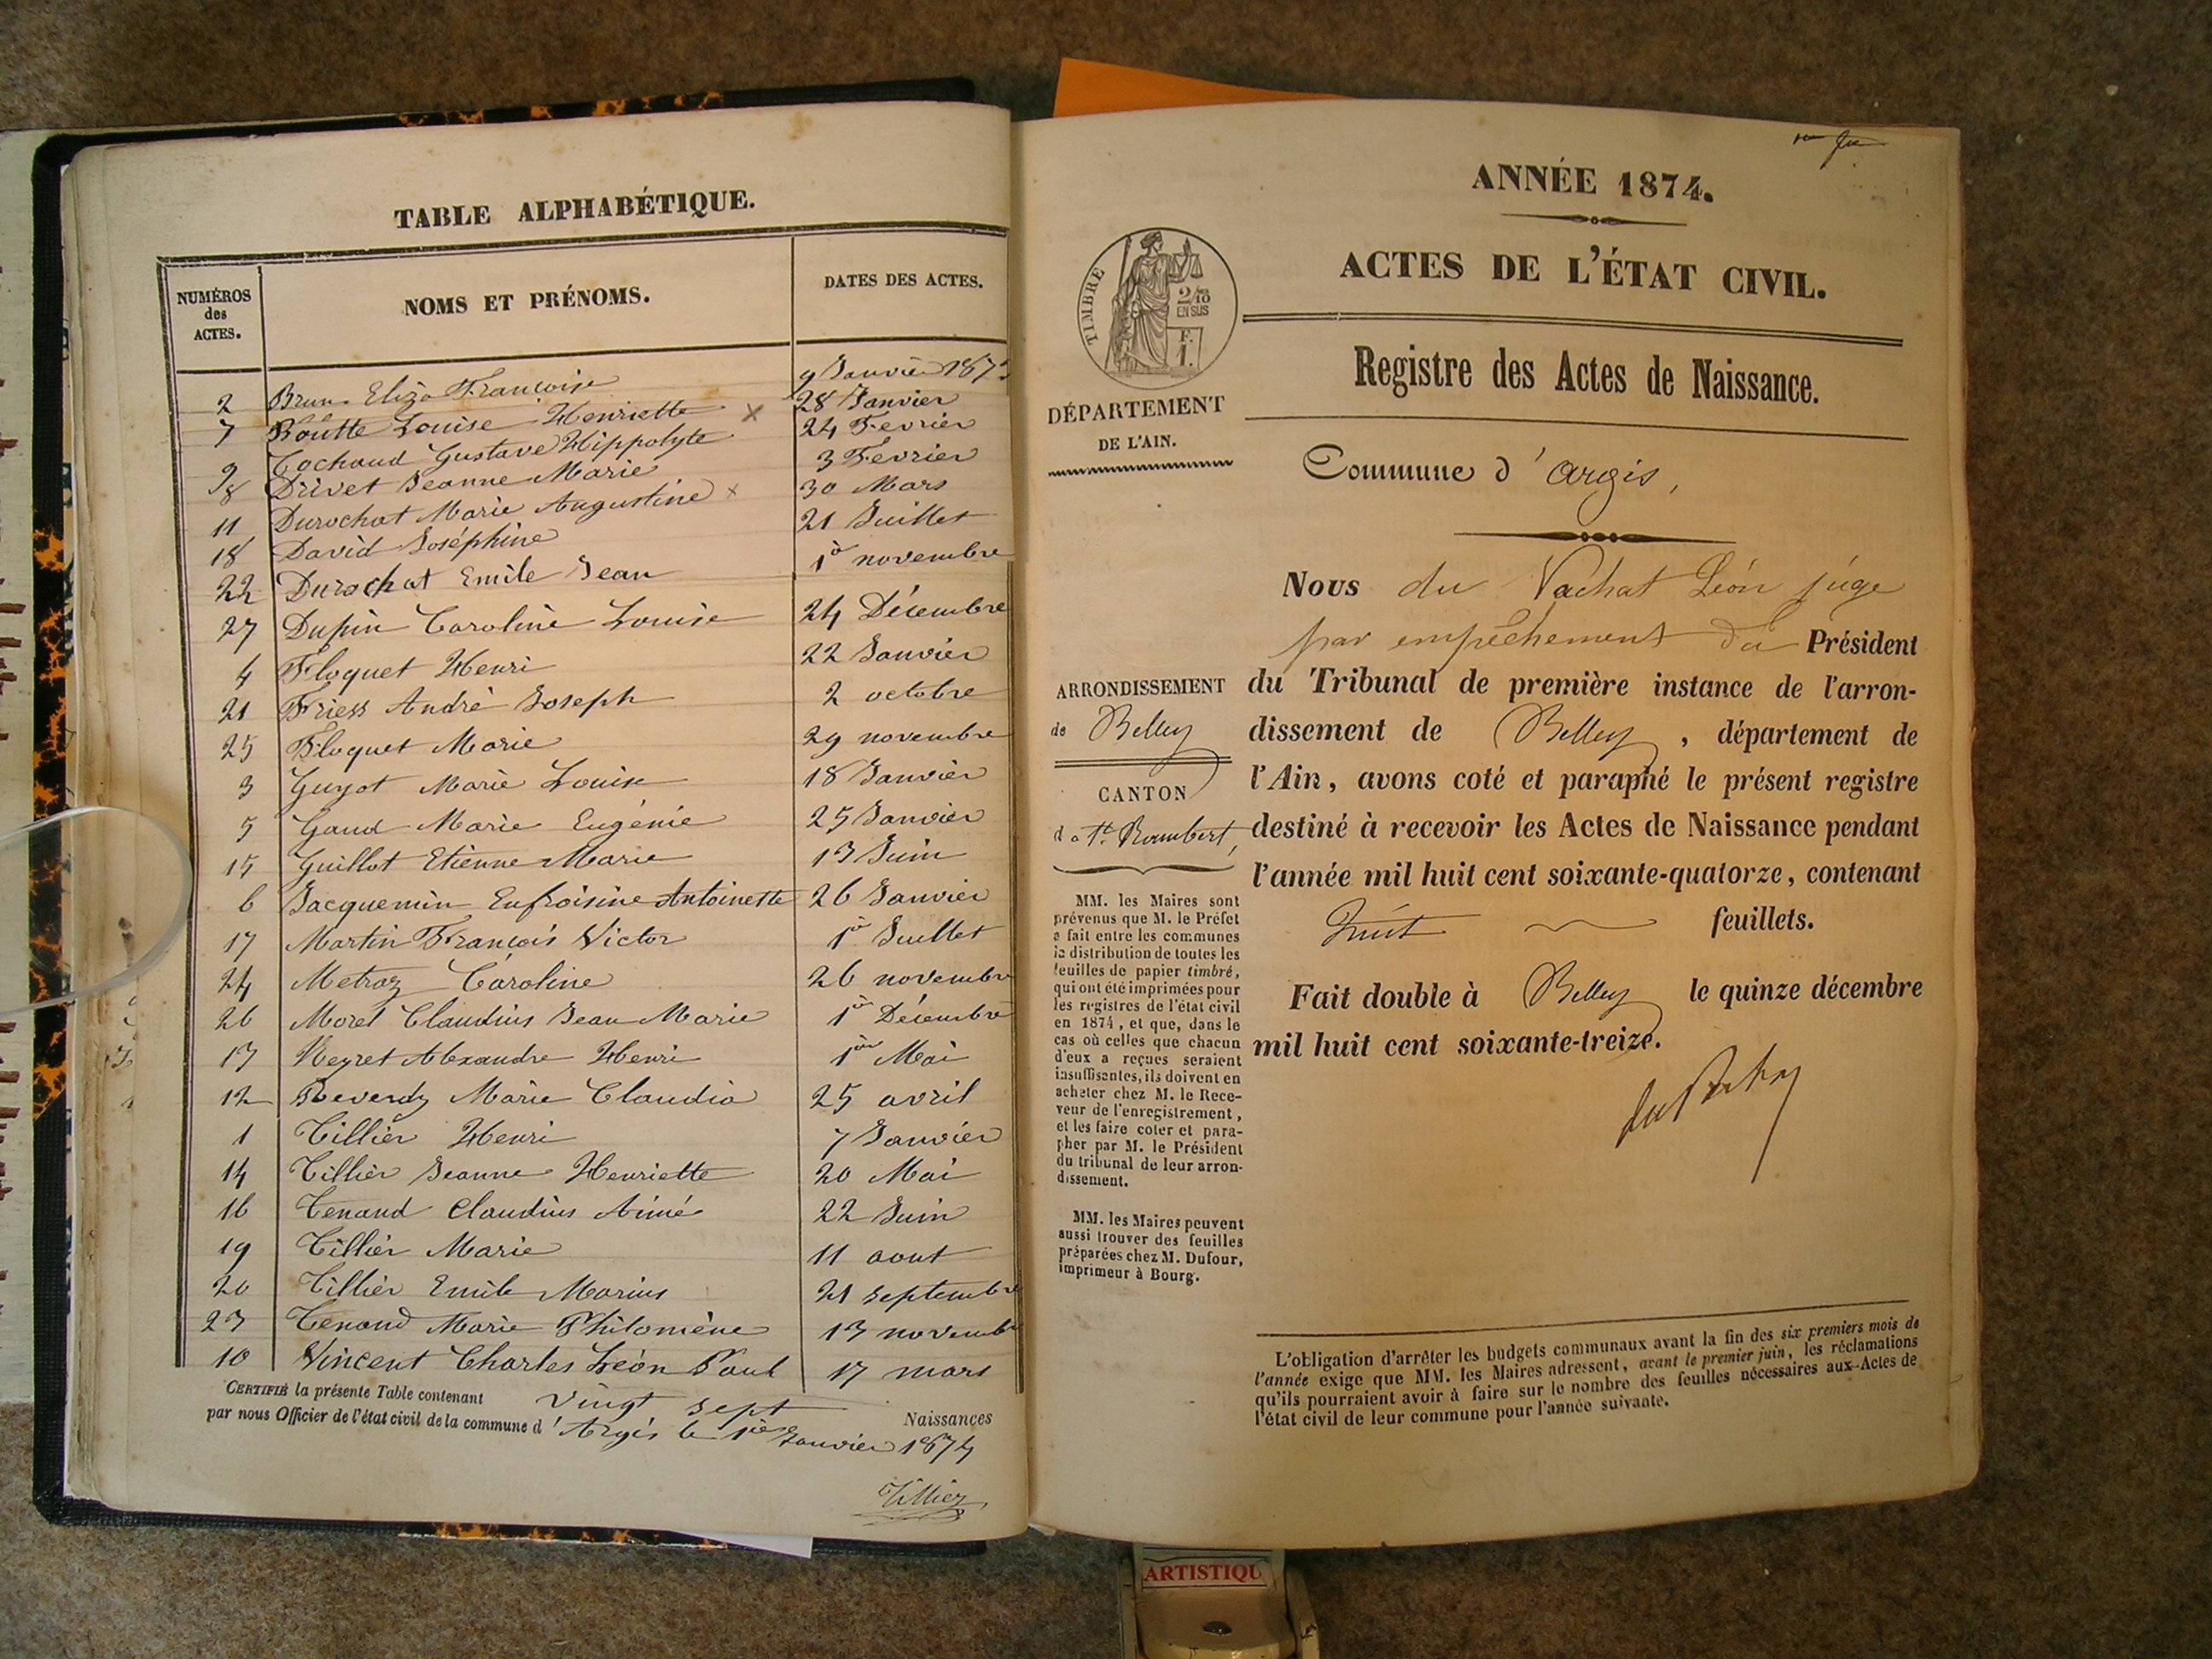 TABLE ALPHABÉTIQUE.
NUMÉROS des ACTES. NOMS ET PRÉNOMS. DATES DES ACTES.
2 Brun Eliza Françoise 9 Janvier 1873
7 Boutte Louise Henriette x 28 Janvier
9 Cochaud Gustave Hippolyte 24 Fevrier
8 Drivet Jeanne Marie 3 Fevrier
11 Durochat Marie Augustine x 30 Mars
18 David Joséphine 21 Juillet
22 Durochat Emile Jean 1er novembre
27 Dupin Caroline Louise 24 Décembre
4 Floquet Henri 22 Janvier
21 Friess André Joseph 2 octobre
25 Floquet Marie 29 novembre
3 Guyot Marie Louise 18 Janvier
5 Gaud Marie Eugénie 25 Janvier
15 Guillot Etienne Marie 13 Juin
6 Jacquemin Eufroisine Antoinette 26 Janvier
17 Martin François Victor 1er Juillet
24 Metraz Caroline 26 novembre
26 Morel Claudius Jean Marie 1er Décembre
13 Neyret Alexandre Henri 1er Mai
12 Reverdy Marie Claudia 25 avril
1 Tillier Henri 7 Janvier
14 Tillier Jeanne Henriette 20 Mai
16 Tenand Claudius Aimé 22 Juin
19 Tillier Marie 11 aout
20 Tillier Emile Marius 21 septembre
23 Tenand Marie Philomène 13 novembre
10 Vincent Charles Léon Paul 17 mars
CERTIFIÉ la présente Table contenant vingt sept Naissances
par nous Officier de l'état civil de la commune d'Argis le 1er Janvier 1874
Tillier
ANNÉE 1874.
ACTES DE L'ÉTAT CIVIL.
TIMBRE
2/10
EN SUS
F.
1.
Registre des Actes de Naissance.
DÉPARTEMENT
DE L'AIN.
Commune d'argis,
Nous du Vachat Léon juge
par empêchement du Président
du Tribunal de première instance de l'arron-
dissement de Belley, département de
l'Ain, avons coté et paraphé le présent registre
destiné à recevoir les Actes de Naissance pendant
l'année mil huit cent soixante-quatorze, contenant
huit feuillets.
Fait double à Belley le quinze décembre
mil huit cent soixante-treize.
ARRONDISSEMENT
de Belley
CANTON
de St. Rambert,
MM. les Maires sont
prévenus que M. le Préfet
a fait entre les communes
la distribution de toutes les
feuilles de papier timbré,
qui ont été imprimées pour
les registres de l'état civil
en 1874, et que, dans le
cas où celles que chacun
d'eux a reçues seraient
insuffisantes, ils doivent en
acheter chez M. le Rece-
veur de l'enregistrement,
et les faire coter et para-
pher par M. le Président
du tribunal de leur arron-
dissement.
MM. les Maires peuvent
aussi trouver des feuilles
préparées chez M. Dufour,
imprimeur à Bourg.
L'obligation d'arrêter les budgets communaux avant la fin des six premiers mois de
l'année exige que MM. les Maires adressent, avant le premier juin, les réclamations
qu'ils pourraient avoir à faire sur le nombre des feuilles nécessaires aux Actes de
l'état civil de leur commune pour l'année suivante.
ARTISTIQU